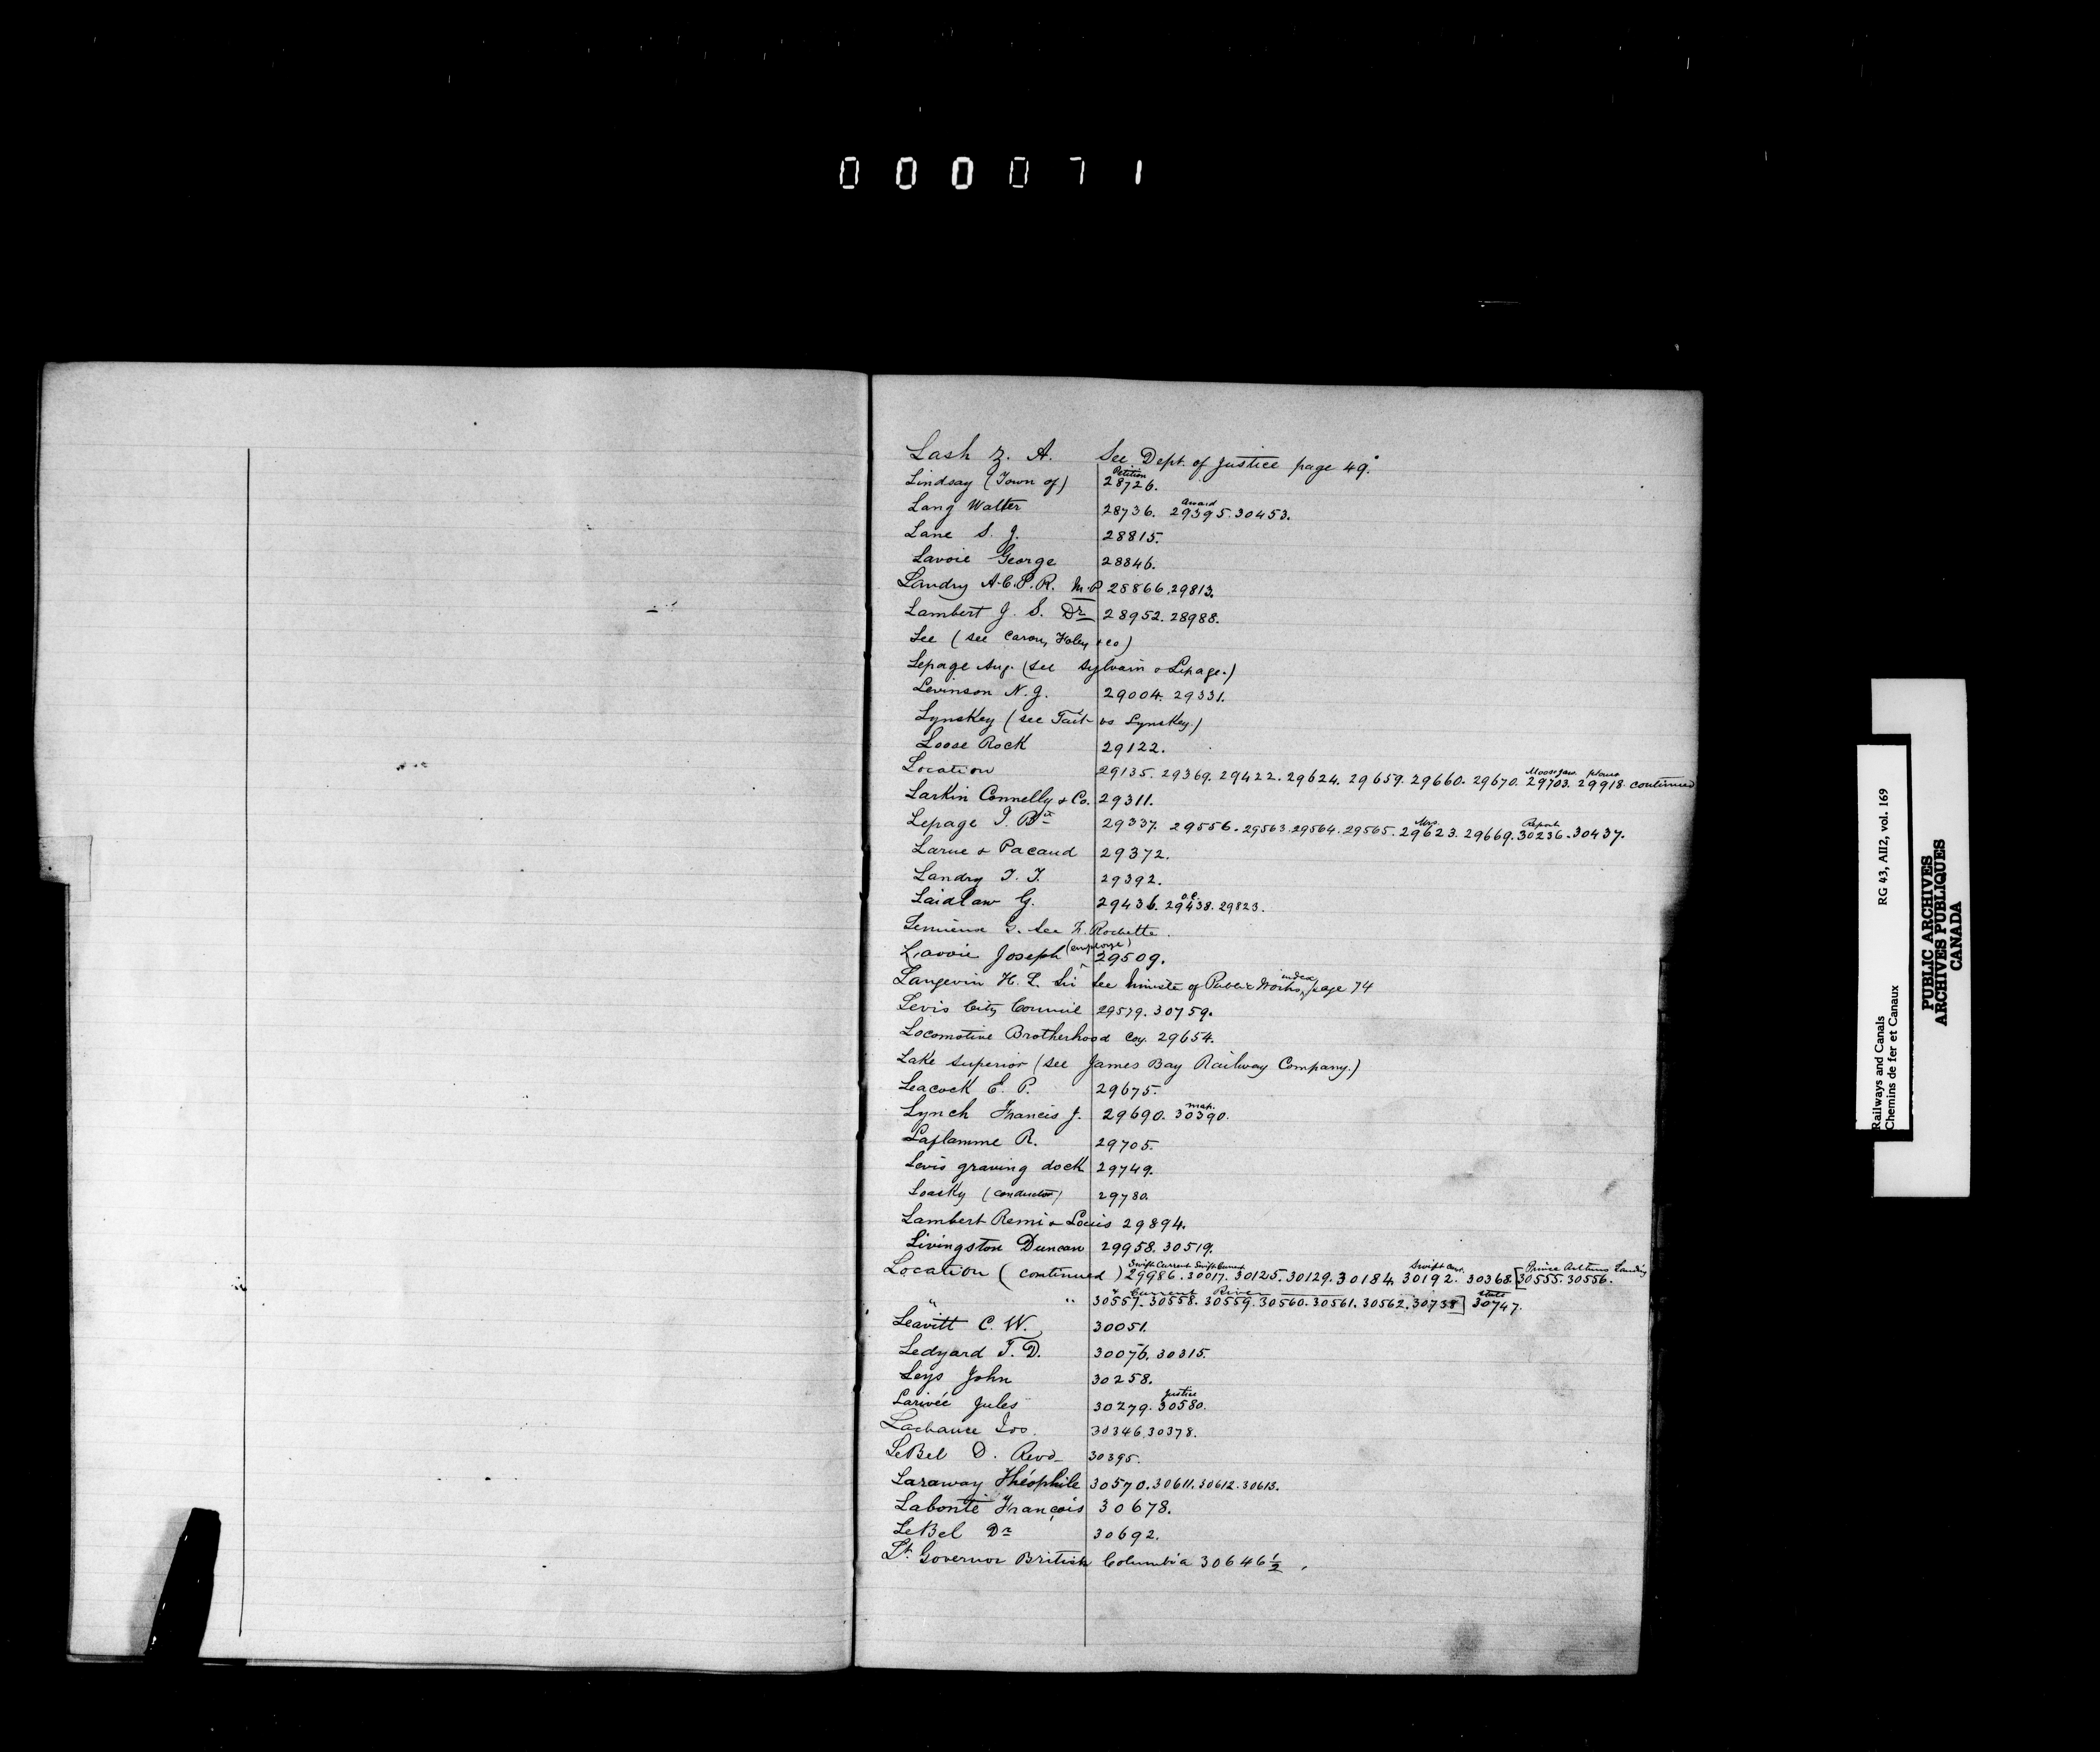 000071
Lash Z. A. See Dept. of Justice page 49.
Petition
Lindsay (Town of) 28726.
Award
Lang Walter 28736. 29395. 30453.
Lane S. J. 28815.
Lavoie George 28846.
Landry A.C.P.R. M.P 28866. 29813.
Lambert J. S. Dr 28952. 28988.
Lee (see Caron, Foley & Co)
Lepage Aug. (see Sylvain & Lepage.)
Levinson N. J. 29004. 29331.
Lynskey (see Tait vs. Lynskey.)
Loose Rock 29122.
Moose Jaw
Location 29135. 29369. 29422. 29624. 29659. 29660. 29670. 29703. 29918. continued
Larkin Connelly & Co. 29311.
Mrs. Report
Lepage J. Bte 29337. 29556. 29563. 29564. 29565. 29623. 29669. 30236. 30437.
Larue & Pacaud 29372.
Landry T. T. 29392.
Laidlaw G. 29436. 29438. 29823.
Lemieux G. See Z. Rochette.
Lavoie Joseph (employe) 29509.
Langevin H. L. Sir See Minister of Public Works, index page 74
Levis City Council 29579. 30759.
Locomotive Brotherhood Coy. 29654.
Lake Superior (see James Bay Railway Company.)
Leacock E. P. 29675.
map.
Lynch Francis J. 29690. 30390.
Laflamme R. 29705.
Levis graving dock 29749.
Loasky (conductor) 29780.
Lambert Remi & Louis 29894.
Livingston Duncan 29958. 30519.
Swift Current Swift Current Swift Curt. Prince Arthurs Landing
Location (continued) 29986. 30017. 30125. 30129. 30184. 30192. 30368. [30555. 30556.
Current River
" " 30557. 30558. 30559. 30560. 30561. 30562. 30738] 30747.
Leavitt C. W. 30051.
Ledyard T. D. 30076. 30315.
Leys John 30258.
Justice
Larivée Jules 30279. 30580.
Lachance Jos. 30346. 30378.
LeBel D. Revd 30395.
Laraway Théophile 30570. 30611. 30612. 30613.
Labonté François 30678.
LeBel Dr 30692.
Lt. Governor British Columbia 30646 1/2.
Railways and Canals RG 43, AII2, vol. 169
Chemins de fer et Canaux
PUBLIC ARCHIVES
ARCHIVES PUBLIQUES
CANADA